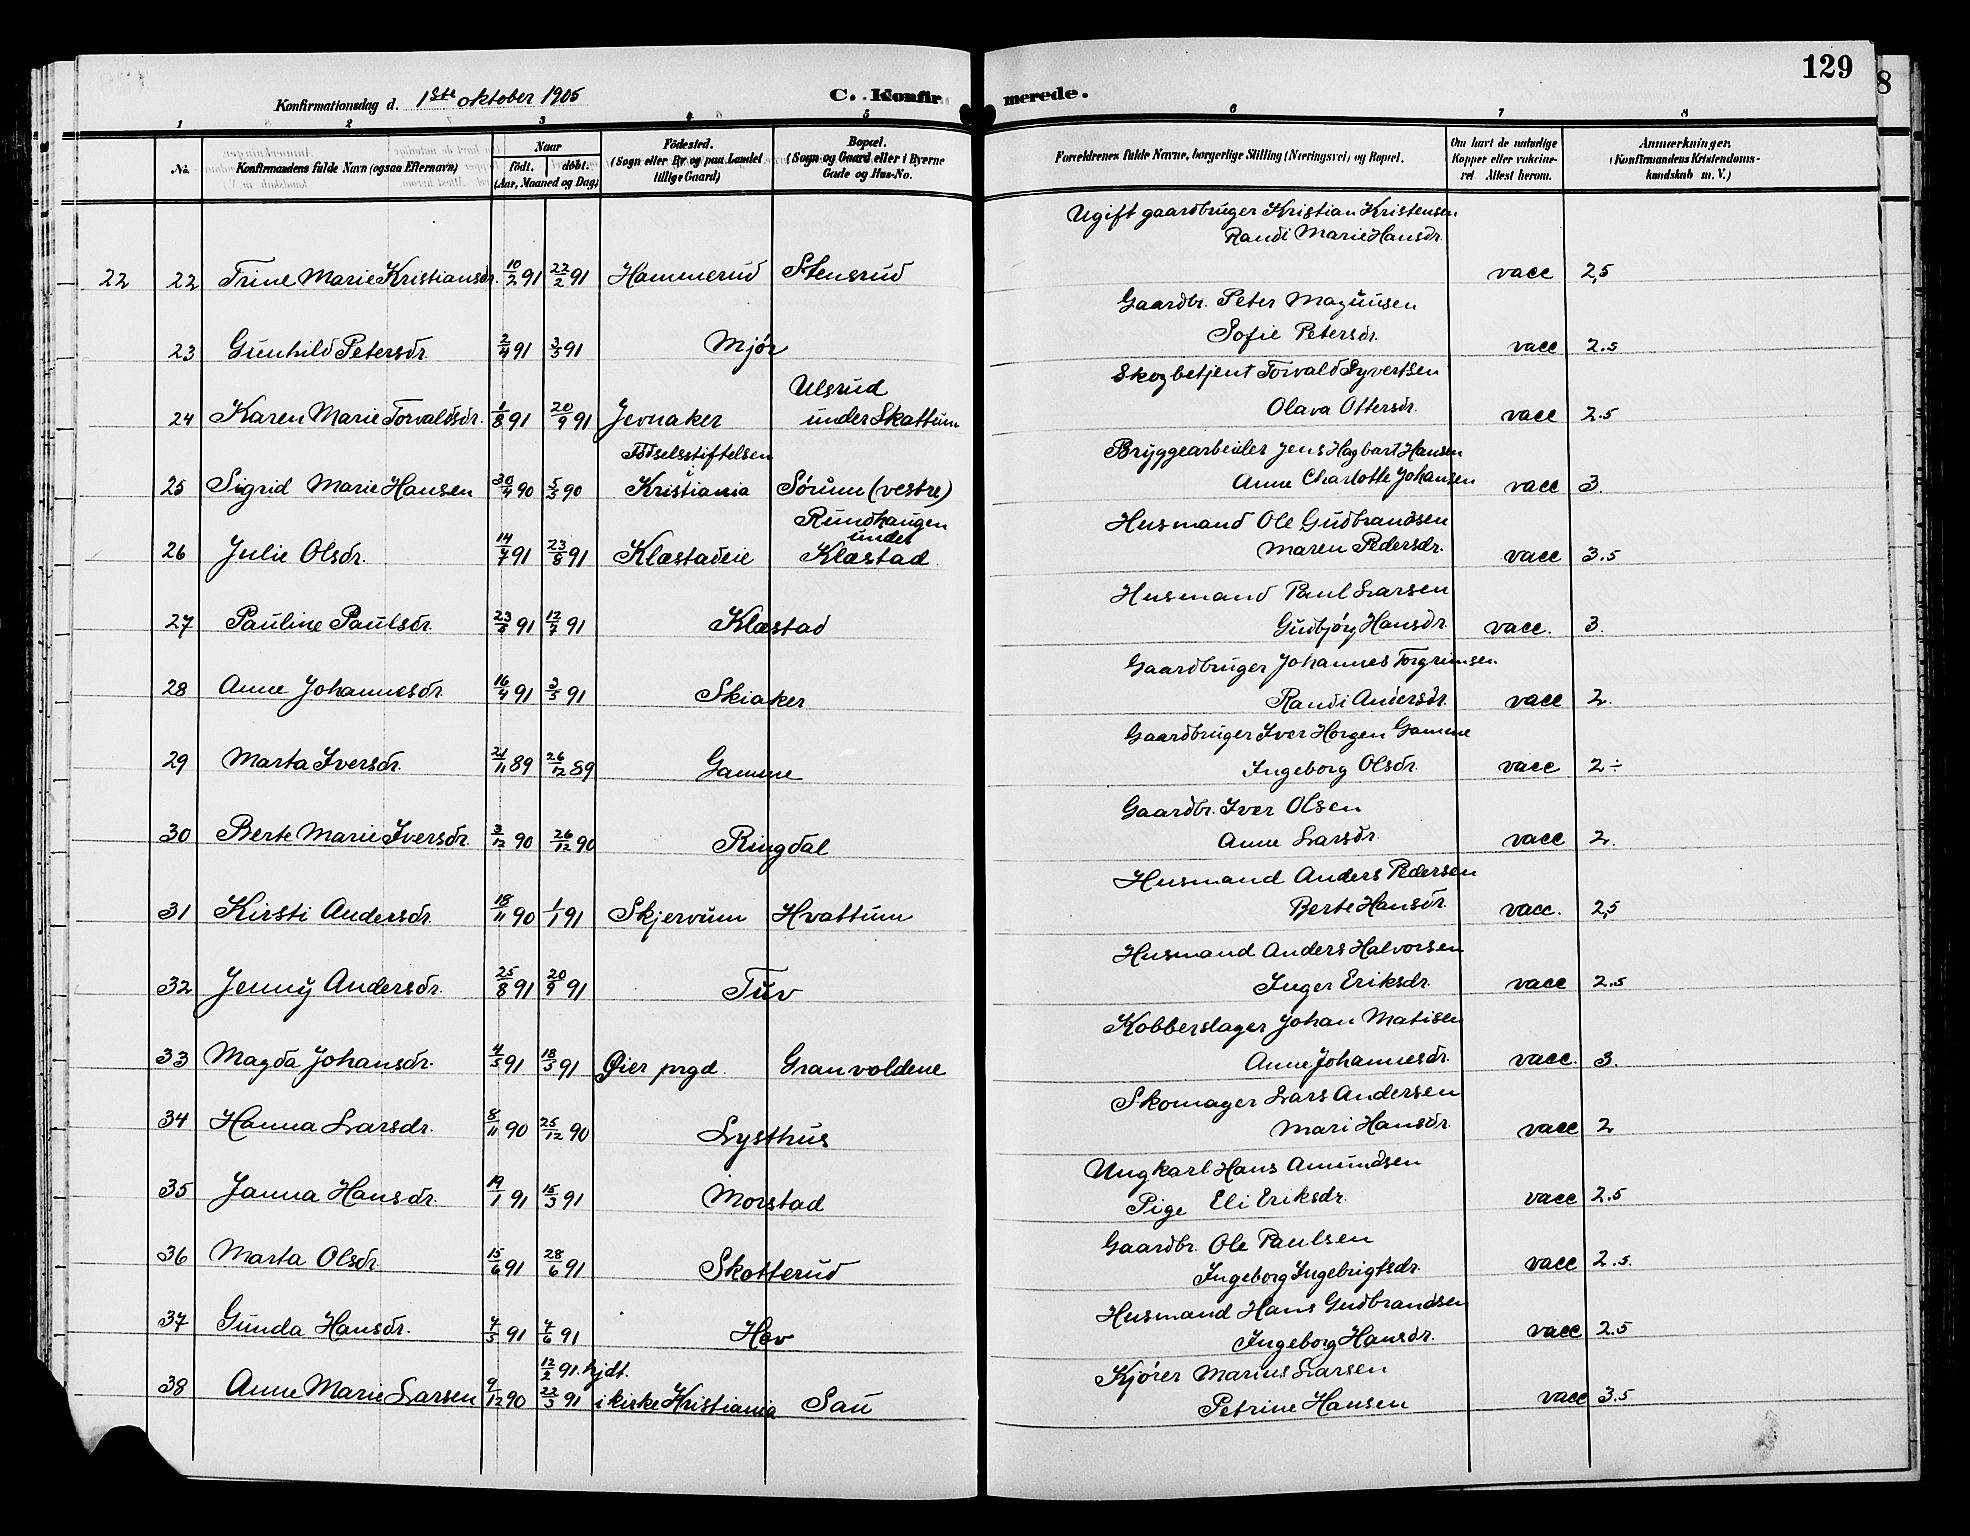 129
8
Konfirmationsdag d. 1ste oktober 1905
C. Konfirmerede.
1 2 3 4 5 6 7 8
No. Konfirmandens fulde Navn (ogsaa Efternavn) Naar født. døbt. (Aar, Maaned og Dag) Fødested. (Sogn eller By og paa Landet tillige Gaard) Bopæl. (Sogn og Gaard eller i Byerne Gade og Hus-No. Forældrenes fulde Navne, borgerlige Stilling (Næringsvei) og Bopæl. Om havt de naturlige Kopper eller vakcineret Attest herom. Anmærkninger. (Konfirmandens Kristendomskundskab m. V.)
Ugift gaardbruger Kristian Kristensen
Randi Marie Hansdr.
22 22 Trine Marie Kristiansdr. 10/2 91 22/2 91 Hammerud Stensrud vacc 2,5
Gaardbr. Peter Magnusen
Sofie Petersdr.
23 Gunhild Petersdr. 2/4 91 3/5 91 Mjør vacc 2.5
Skogbetjent Torvald Syvertsen
Ulsrud
24 Karen Marie Torvaldsdr. 1/8 91 20/9 91 Jevnaker under Skattum Olava Ottersdr. vacc 2.5
Fødselsstiftelsen Bryggearbeider Jens Hagbart Hansen
25 Sigrid Marie Hansen 30/4 90 5/5 90 Kristiania Sørum (vestre) Anne Charlotte Johansen vacc 3.
Rundhaugen Husmand Ole Gudbrandsen
under
26 Julie Olsdr. 14/7 91 23/8 91 Klæstadeie Klæstad Maren Pedersdr. vacc 3.5
Husmand Paul Larsen
27 Pauline Paulsdr. 23/5 91 12/7 91 Klæstad Gudbjørg Hansdr. vacc. 3.
Gaardbruger Johannes Torgrimsen
28 Anne Johannesdr. 16/4 91 3/5 91 Skiaker Randi Andersdr. vacc 2.
Gaardbruger Iver Horgen Gamme
29 Marta Iversdr. 21/11 89 26/12 89 Gamme Ingeborg Olsdr. vacc 2÷
Gaardbr. Iver Olsen
30 Berte Marie Iversdr. 3/12 90 26/12 90 Ringdal Anne Larsdr. vacc 2.
Husmand Anders Pedersen
31 Kirsti Andersdr. 18/11 90 1/1 91 Skjervum Hvattum Berte Hansdr. vacc. 2,5
Husmand Anders Halvorsen
32 Jenny Andersdr. 25/8 91 20/9 91 Tuv Inger Eriksdr. vacc 2.5
Kobberslager Johan Matisen
33 Magda Johansdr. 4/5 91 18/5 91 Øier prgd. Granvoldene Anne Johannesdr. vacc. 3.
Skomager Lars Andersen
34 Hanna Larsdr. 8/11 90 25/12 90 Lysthus Mari Hansdr. vacc 2
Ungkarl Hans Amundsen
35 Janna Hansdr. 19/1 91 15/3 91 Morstad Pige Eli Eriksdr. vacc 2.5
Gaardbr. Ole Paulsen
36 Marta Olsdr. 15/6 91 28/6 91 Skotterud Ingeborg Ingebrigtsdr. vacc 2.5.
Husmand Hans Gudbrandsen
37 Gunda Hansdr. 7/5 91 7/6 91 Hov Ingeborg Hansdr. vacc 2.5
12/2 91. hjdt. Kjører Marius Larsen
38 Anne Marie Larsen 9/12 90 22/3 91 i kirke Kristiania Sau Petrine Hansen vacc 3.5